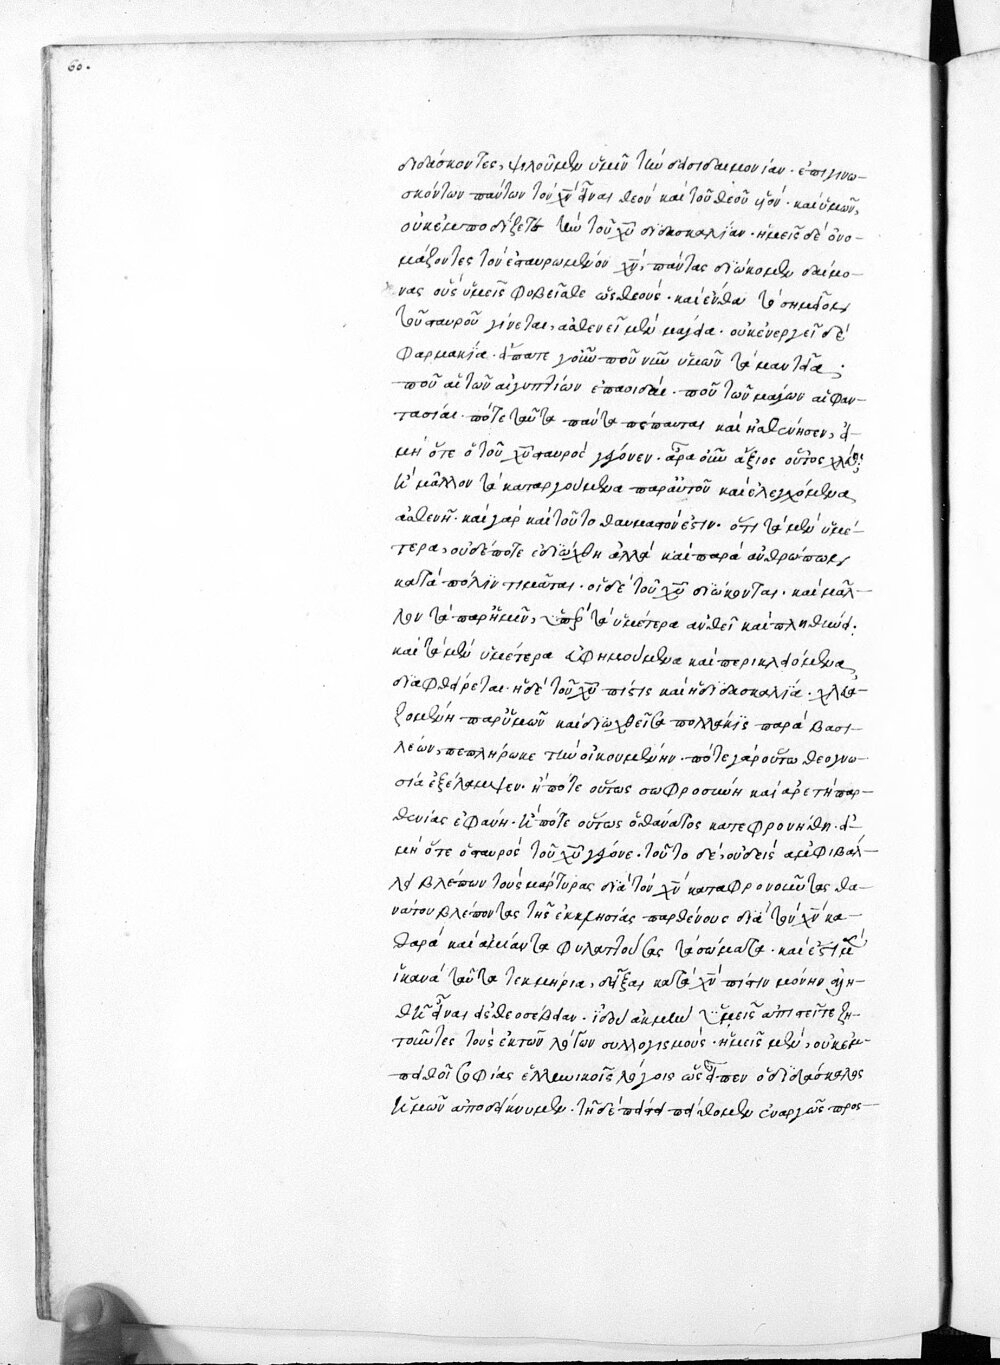 60.
διδάσκοντες, ψιλοῦμεν ὑμῖν τὴν δεισιδαιμονίαν· ἐπιγινω-
σκόντων πάντων τὸν χ̅ν̅ εἶναι θεὸν καὶ τοῦ θεοῦ υἱόν· καὶ ὑμεῖς,
οὐκ ἐμποδίζετε τὴν τοῦ χ̅υ̅ διδασκαλίαν· ἡμεῖς δὲ ὀνο-
μάζοντες τὸν ἐσταυρωμένον χ̅ν̅, πάντας διώκομεν δαίμο-
νας οὓς ὑμεῖς φοβεῖσθε ὡς θεούς· καὶ ἔνθα τὸ σημεῖον
τοῦ σταυροῦ γίνεται, ἀσθενεῖ μὲν μαγεία· οὐκ ἐνεργεῖ δὲ
φαρμακεία· εἴπατε γοῦν ποῦ νῦν ὑμῶν τὰ μαντεῖα;
ποῦ αἱ τῶν αἰγυπτίων ἐπαοιδαί· ποῦ τῶν μάγων αἱ φαν-
τασίαι· πότε ταῦτα πάντα πέπαυται καὶ ἠσθένησεν, εἰ
μὴ ὅτε ὁ τοῦ χ̅υ̅ σταυρὸς γέγονεν· ἆρα οὖν ἄξιος οὗτος χλεύης
ἢ μᾶλλον τὰ καταργούμενα παρ' αὐτοῦ καὶ ἐλεγχόμενα
ἀσθενῆ· καὶ γὰρ καὶ τοῦτο θαυμαστόν ἐστιν· ὅτι τὰ μὲν ὑμέ-
τερα, οὐδέποτε ἐδιώχθη ἀλλὰ καὶ παρὰ ἀνθρώπων
κατὰ πόλιν τιμᾶται· οἱ δὲ τοῦ χ̅υ̅ διώκονται· καὶ μᾶλ-
λον τὰ παρ' ἡμῖν, ὑπὲρ τὰ ὑμέτερα ἀνθεῖ καὶ πληθύνει·
καὶ τὰ μὲν ὑμέτερα εὐφημούμενα καὶ περικλειόμενα
διαφθείρεται· ἡ δὲ τοῦ χ̅υ̅ πίστις καὶ ἡ διδασκαλία· χλευα-
ζομένη παρ' ὑμῶν καὶ διωχθεῖσα πολλάκις παρὰ βασι-
λέων, πεπλήρωκε τὴν οἰκουμένην· πότε γὰρ οὕτω θεογνω-
σία ἐξέλαμψεν· ἢ πότε οὕτως σωφροσύνη καὶ ἀρετὴ παρ-
θενίας ἐφάνη· ἢ πότε οὕτως ὁ θάνατος κατεφρονήθη· εἰ
μὴ ὅτε ὁ σταυρὸς τοῦ χ̅υ̅ γέγονε· τοῦτο δὲ, οὐδεὶς ἀμφιβάλ-
λει βλέπων τοὺς μάρτυρας διὰ τὸν χ̅ν̅ καταφρονοῦντας θα-
νάτου βλέποντας τῆς ἐκκλησίας παρθένους διὰ τὸν χ̅ν̅ κα-
θαρὰ καὶ ἀμίαντα φυλαττούσας τὰ σώματα· καὶ ἔστι μὲν
ἱκανὰ ταῦτα τεκμήρια, δεῖξαι κατὰ χ̅ν̅ πίστιν μόνην ἀλη-
θῆ εἶναι εἰς θεοσέβειαν· ἰδοὺ ἀκμὴν ὑμεῖς ἀπιστεῖτε ζη-
τοῦντες τοὺς ἐκ τῶν λόγων συλλογισμούς· ἡμεῖς μὲν, οὐκ ἐν
πειθοῖ σοφίας ἑλληνικοῖς λόγοις ὡς εἶπεν ὁ διδάσκαλος
ἡμῶν ἀποδείκνυμεν· τῇ δὲ πίστει πείθομεν ἐναργῶς προς-